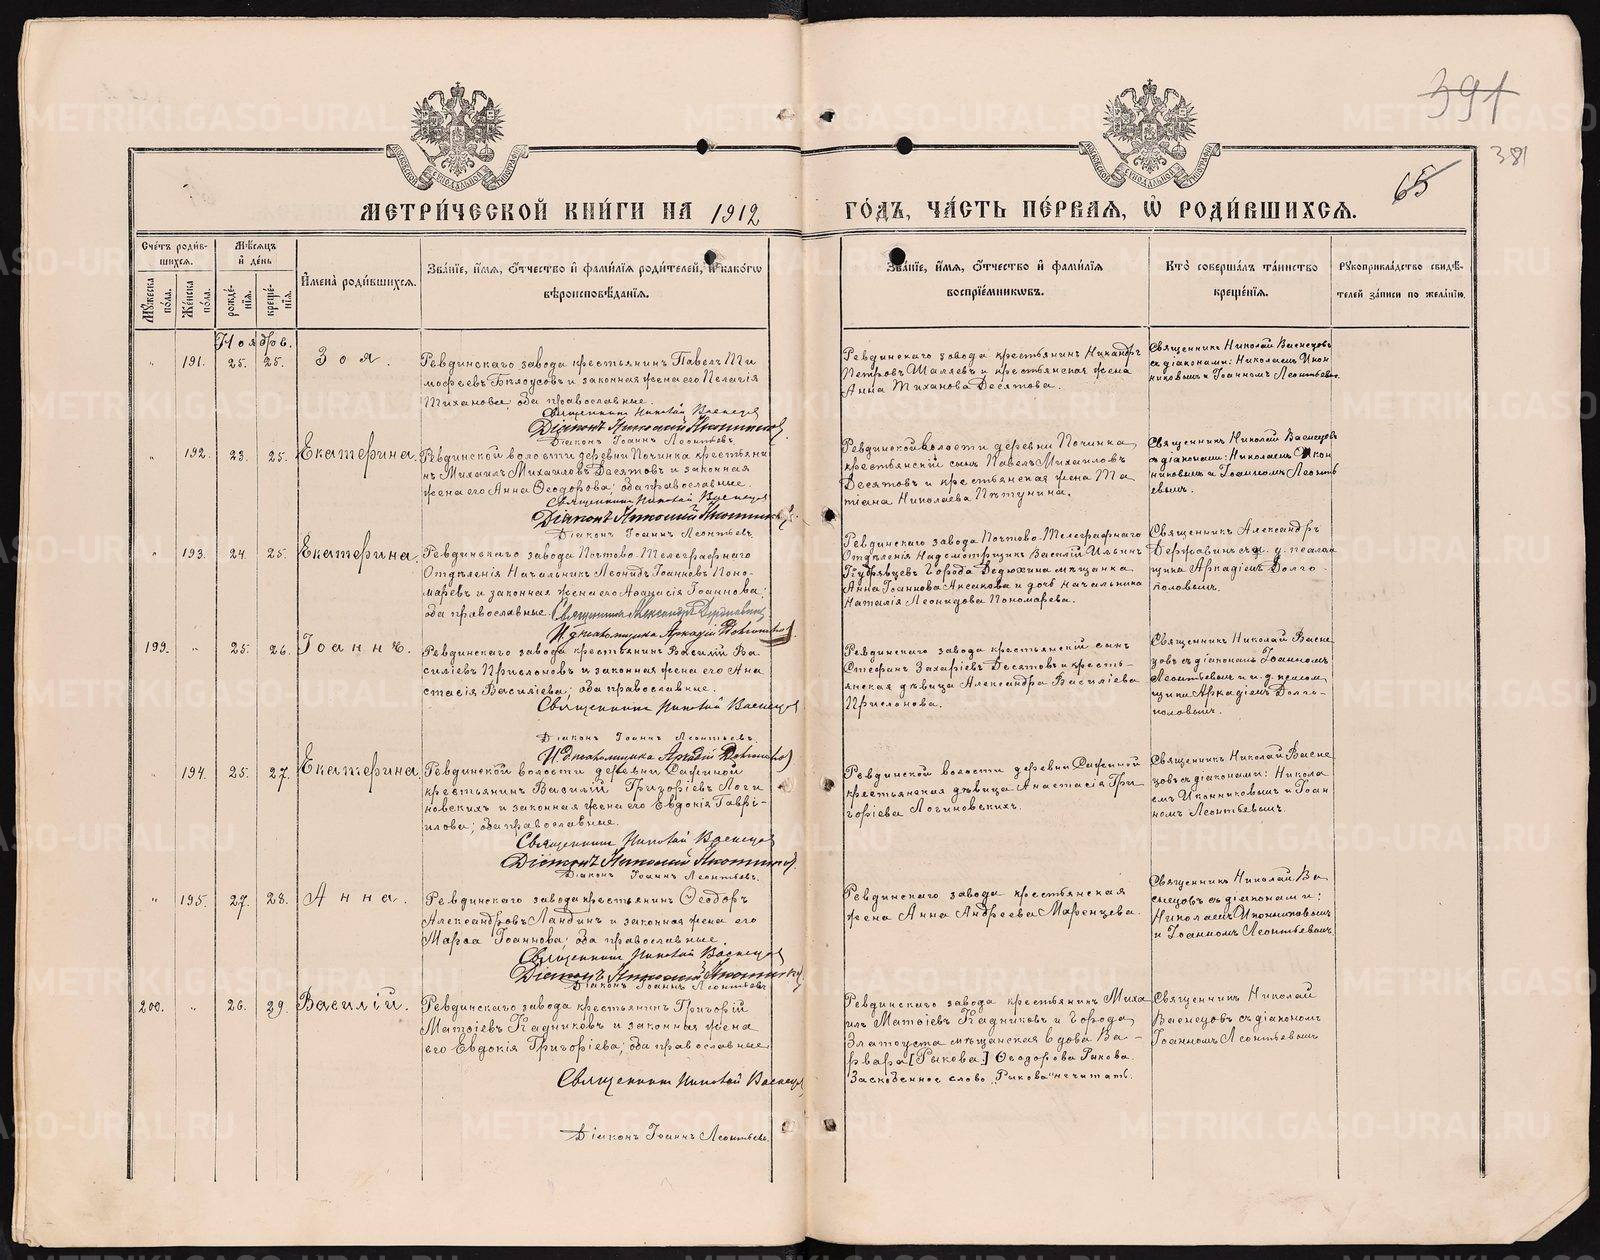 391
381
65
МЕТРИ́ЧЕСКОЙ КНИ́ГИ НА 1912 ГО́ДЪ, ЧА́СТЬ ПЕ́РВАЯ, Ѡ РОДИ́ВШИХСЯ.
Сче́тъ роди́вшихся.
Му́жеска по́ла.
Же́нска по́ла.
Мѣ́сяцъ и де́нь
рожде́нія.
креще́нія.
Имена́ роди́вшихся.
Зва́ніе, и́мя, о́тчество и фами́лія роди́телей, и како́гѡ
вѣроисповѣ́данія.
Зва́ніе, и́мя, о́тчество и фами́лія
воспріе́мниковъ.
Кто̀ соверша́лъ та́инство
креще́нія.
Рукоприкла́дство свидѣ́-
телей за́писи по жела́нію.
Ноябрь.
" 191. 25. 25. Зоя.
Ревдинскаго завода крестьянинъ Павелъ Ти
мофеевъ Бѣлоусовъ и законная жена его Пелагія
Тиханова; оба православные.
Священникъ Николай Васнецов
Діаконъ Николай Иконников
Діаконъ Іоаннъ Леонтьевъ.
Ревдинскаго завода крестьянинъ Никандръ
Петровъ Шаляевъ и крестьянская жена
Анна Тиханова Десятова.
Священникъ Николай Васнецовъ
съ діаконами: Николаемъ Икон
никовымъ и Іоанномъ Леонтьевымъ.
" 192. 23. 25. Екатерина.
Ревдинской волости деревни Починка крестьяни
нъ Михаилъ Михаиловъ Десятовъ и законная
жена его Анна Ѳеодорова; оба православные.
Священникъ Николай Васнецов
Діаконъ Николай Иконников
Діаконъ Іоаннъ Леонтьевъ.
Ревдинской волости деревни Починка
крестьянскій сынъ Павелъ Михаиловъ
Десятовъ и крестьянская жена Та
тіана Николаева Пѣтунина.
Священникъ Николай Васнецовъ
съ діаконами: Николаемъ Икон
никовымъ и Іоанномъ Леонть
евымъ.
" 193. 24. 25. Екатерина.
Ревдинскаго завода Почтово-Телеграфнаго
Отдѣленія Начальникъ Леонидъ Іоанновъ Поно-
маревъ и законная жена его Аѳанасія Іоаннова;
оба православные. Священникъ Александръ Державинъ
И. д. псаломщика Аркадій Долгополов
Ревдинскаго завода Почтово-Телеграфнаго
Отдѣленія Надсмотрщикъ Василій Ильинъ
Кудрявцевъ Города Дедюхина мѣщанка
Анна Іоаннова Аксакова и дочь начальника
Наталія Леонидова Пономарева.
Священникъ Александръ
Державинъ съ и. д. псалом
щика Аркадіемъ Долго-
половымъ.
199. " 25. 26. Іоаннъ.
Ревдинскаго завода крестьянинъ Василій Ва
силіевъ Прислоновъ и законная жена его Ана
стасія Василіева; оба православные.
Священникъ Николай Васнецов
Діаконъ Іоаннъ Леонтьевъ.
И. д. псаломщика Аркадій Долгополов
Ревдинскаго завода крестьянскій сынъ
Стефанъ Захаріевъ Десятовъ и кресть-
янская дѣвица Александра Василіева
Прислонова.
Священникъ Николай Васне
цовъ съ діакономъ Іоанномъ
Леонтьевымъ и и. д. псалом
щика Аркадіемъ Долго-
половымъ.
" 194. 25. 27. Екатерина.
Ревдинской волости деревни
крестьянинъ Василій Григоріевъ Логи
новскихъ и законная жена его Евдокія Гаврі-
илова; оба православные.
Священникъ Николай Васнецов
Діаконъ Николай Иконников
Діаконъ Іоаннъ Леонтьевъ.
Ревдинской волости деревни
крестьянская дѣвица Анастасія Гри
горіева Логиновскихъ.
Священникъ Николай Васне
цовъ съ діаконами: Никола
емъ Иконниковымъ и Іоан
номъ Леонтьевымъ.
" 195. 27. 28. Анна.
Ревдинскаго завода крестьянинъ Ѳеодоръ
Александровъ Ландинъ и законная жена его
Марѳа Іоаннова; оба православные.
Священникъ Николай Васнецов
Діаконъ Николай Иконников
Діаконъ Іоаннъ Леонтьевъ
Ревдинскаго завода крестьянская
жена Анна Андреева Маренцева.
Священникъ Николай Ва
снецовъ съ діаконами:
Николаемъ Иконниковымъ
и Іоанномъ Леонтьевымъ.
200. " 26. 29. Василій.
Ревдинскаго завода крестьянинъ Григорій
Матѳіевъ Кадниковъ и законная жена
его Евдокія Григоріева; оба православные
Священникъ Николай Васнецов
Діаконъ Іоаннъ Леонтьевъ.
Ревдинскаго завода крестьянинъ Миха
илъ Матѳіевъ Кадниковъ и Города
Златоуста мѣщанская вдова Ва-
рвара [Рыкова] Ѳеодорова Рыкова.
Заскобенное слово „Рыкова" не читать.
Священникъ Николай
Васнецовъ съ діакономъ
Іоанномъ Леонтьевымъ
METRIKI.GASO-URAL.RU